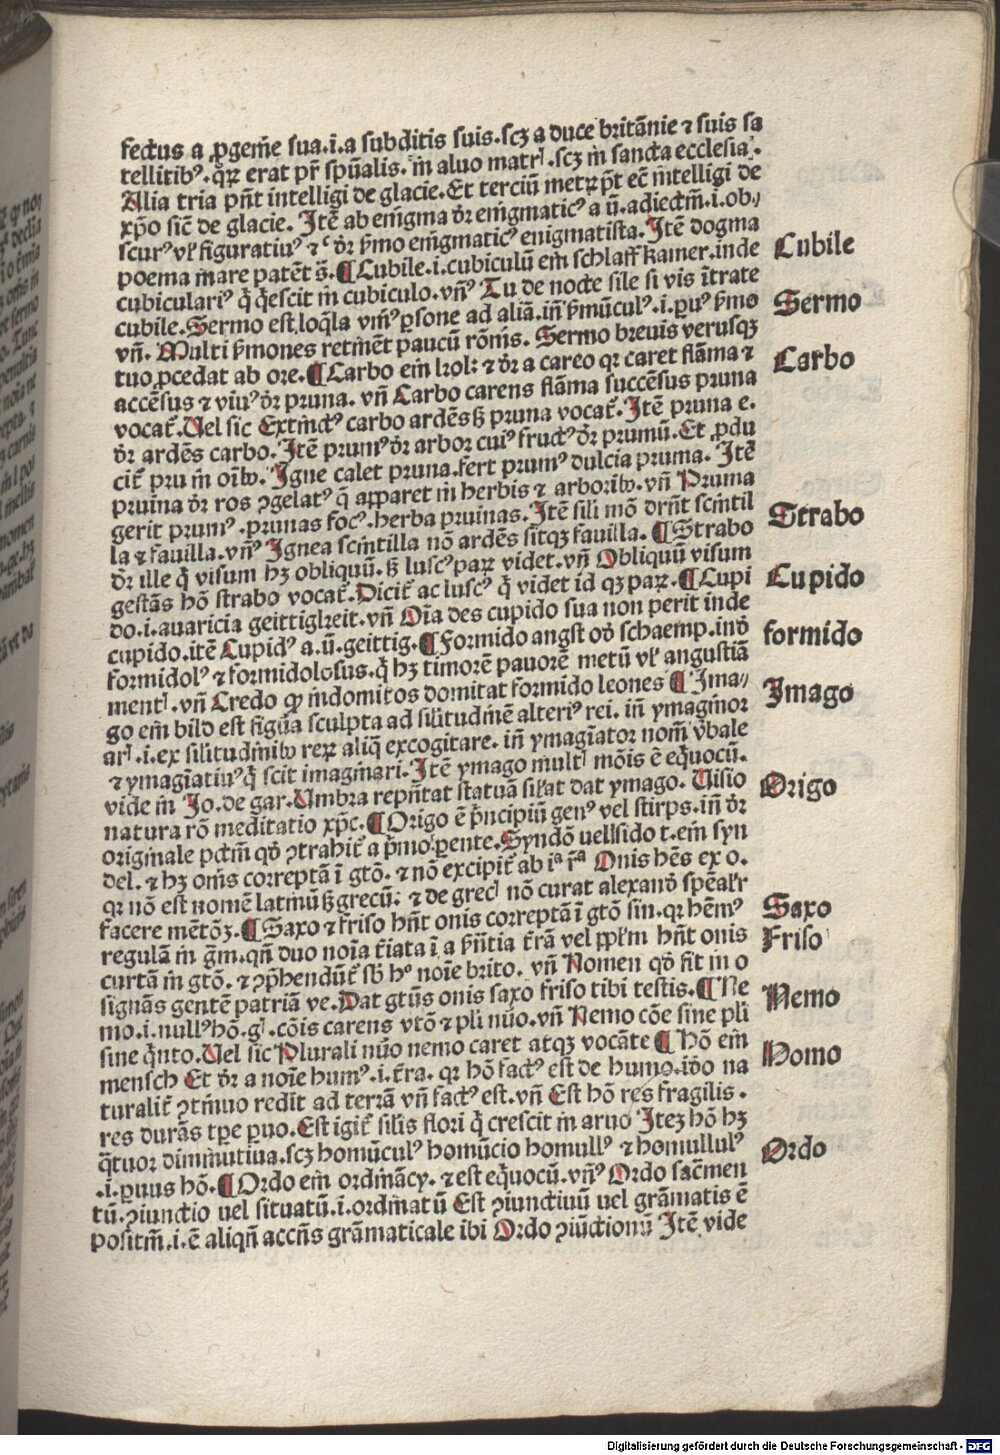 fectus a ꝓgem̄e sua.i.a subditis suis.scꝫ a duce britānie ⁊ suis sa
tellitibꝰ.qꝝ erat pr̄ spūalis.in aluo matrꝭ.scꝫ in sancta ecclesia.
Alia tria pn̄t intelligi de glacie.Et terciū metꝝ pt̄ ec̄ intelligi de
xp̄o sic̄ de glacie. Itē ab enigma dr̄ enigmaticꝰ a ū.adiectm̄.i.ob⸗
scurꝰ vl̓ figuratiuꝰ dr̄ ꝰmo enigmaticꝰ enigmatista.Itē dogma
poema mare patēt s̄.¶Cubile.i.cubiculū em̄ schlaff kamer.inde
Cubile
cubiculariꝰ q̄ q̄escit in cubiculo.vn̄ꝰ Tu de nocte sile si vis ītrate
cubile.Sermo est loq̄la vniꝰ ꝑsone ad aliā.in̄ ꝰmūculꝰ.i.ꝑuꝰ ꝰmo
Sermo
vn̄. Multi ꝰmones retinēt paucū rōnis. Sermo breuis verusqꝫ
tuo ꝓcedat ab ore.¶Carbo em̄ kol: ⁊ dr̄ a careo qꝛ caret flāma ⁊
Carbo
accēsus ⁊ viuꝰ dr̄ pruna. vn̄ Carbo carens flāma succēsus pruna
vocat̄.Uel sic Extinctꝰ carbo ardēs ꝫ pruna vocat̄.Itē pruna e.
dr̄ ardēs carbo.Itē prunꝰ dr̄ arbor cuiꝰ fructꝰ dr̄ prunū.Et ꝓdu
cit̄ pru in oībꝰ.Igne calet pruna.fert prunꝰ dulcia pruna. Itē
pruina dr̄ ros ꝯgelatꝰ q̄ apparet in herbis ⁊ arboribꝰ.vn̄ Pruna
gerit prunꝰ.prunas focꝰ.herba pruinas.Itē sili mō drn̄t scintil
la ⁊ fauilla.vn̄ꝰ Ignea scintilla nō ardēs sitqꝫ fauilla.¶Strabo
Strabo
dr̄ ille q̄ visum hꝫ obliquū.ꝫ luscꝰ paꝝ videt.vn̄ Obliquū visum
gestās hō strabo vocat̄.Dicit̄ ac luscꝰ q̄ videt id qꝫ paꝝ.¶Cupi
Cupido
do.i.auaricia geittigkeit.vn̄ Oīa des cupido sua non perit inde
cupido.itē Cupidꝰ a.ū.geittig.¶Formido angst oð schaemp.inð
formido
formidolꝰ ⁊ formidolosus.q̄ hꝫ timorē pauorē metū vl̓ angustiā
mentꝭ.vn̄ Credo ꝙ indomitos domitat formido leones ¶Ima⸗
Imago
go em̄ bild est figūa sculpta ad silitudinē alteriꝰ rei. in̄ ymaginor
arꝭ.i.ex silitudinibꝰ reꝝ aliq̄ excogitare. in̄ ymagīator nom̄ v̓bale
⁊ ymagīatiuꝰ q̄ scit imaginari.Itē ymago multꝭ mōis ē eq̄uocū.
vide in Jo.de gar.Umbra repn̄tat statuā sil̓at dat ymago. Uisio
natura rō meditatio xp̄c.¶Origo ē p̄ncipiū genꝰ vel stirps.in̄ dr̄
Origo
originale pctm̄ qð ꝯtrahit̄ a p̄mo ꝑente.Syndō uel sido t.em̄ syn
del. ⁊ hꝫ om̄s correptā ī gtō. ⁊ nō excipit̄ ab iᵃ rᵃ Onis hēs ex o.
qꝛ nō est nomē latinū ꝫ grecū: ⁊ de grecꝭ nō curat alexanð spēal̓r
facere mētōꝫ.¶Saxo ⁊ friso hn̄t onis correptā ī gtō sin.qꝛ hēmꝰ
Saxo
regulā in gm̄.qn̄ duo noīa t̄iata ī a ꝓn̄tia t̄rā vel ppl̓m hn̄t onis
Friso
curtā in gtō. ⁊ ꝯp̄hendūt̄ sb̄ hᵒ noīe brito. vn̄ Nomen qð fit in o
signās gentē patriā ve.Dat gtūs onis saxo friso tibi testis.¶Ne
Nemo
mo.i.nullꝰ hō.gꝭ.cōis carens vtō ⁊ pli nūo.vn̄ Nemo cōe sine pli
sine q̄nto.Uel sic Plurali nūo nemo caret atqꝫ vocāte ¶ Hō em̄
Homo
mensch Et dr̄ a noīe humꝰ.i.t̄ra. qꝛ hō factꝰ est de humo.iðo na
turalit̄ ꝯtinuo redit ad terrā vn̄ factꝰ est.vn̄ Est hō res fragilis.
res durās tꝑe ꝑuo.Est igit̄ silis flori q̄ crescit in aruo Iteꝫ hō hꝫ
q̄tuor diminutiua.scꝫ homūculꝰ homūcio homullꝰ ⁊ homullulꝰ
.i.ꝑuus hō.¶Ordo em̄ ordinācy.⁊ est eq̄uocū.vn̄ꝰ Ordo sacmen
Ordo
tū.ꝯiunctio uel situatū.i.ordinatū Est ꝯiunctiuū uel grāmatis ē
positm̄.i.ē aliqn̄ accn̄s grāmaticale ibi Ordo ꝯiūctionū Itē vide
Digitalisierung gefördert durch die Deutsche Forschungsgemeinschaft - DFG